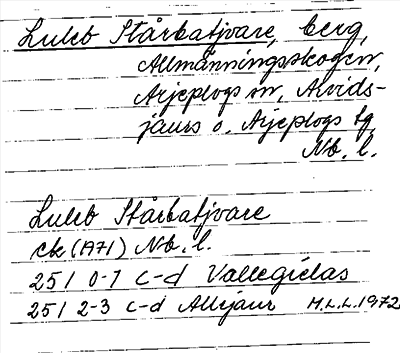 Luleb Stårbatjvare, berg,
Allmänningsskogen,
Arjeplogs sn, Arvids-
jaurs o. Arjeplogs tg,
Nb. l.
Luleb Stårbatjvare
ek (A71) Nb. l.
25 I 0-1 c-d Vallegielas
25 I 2-3 c-d Allejaur M.L.L. 1972